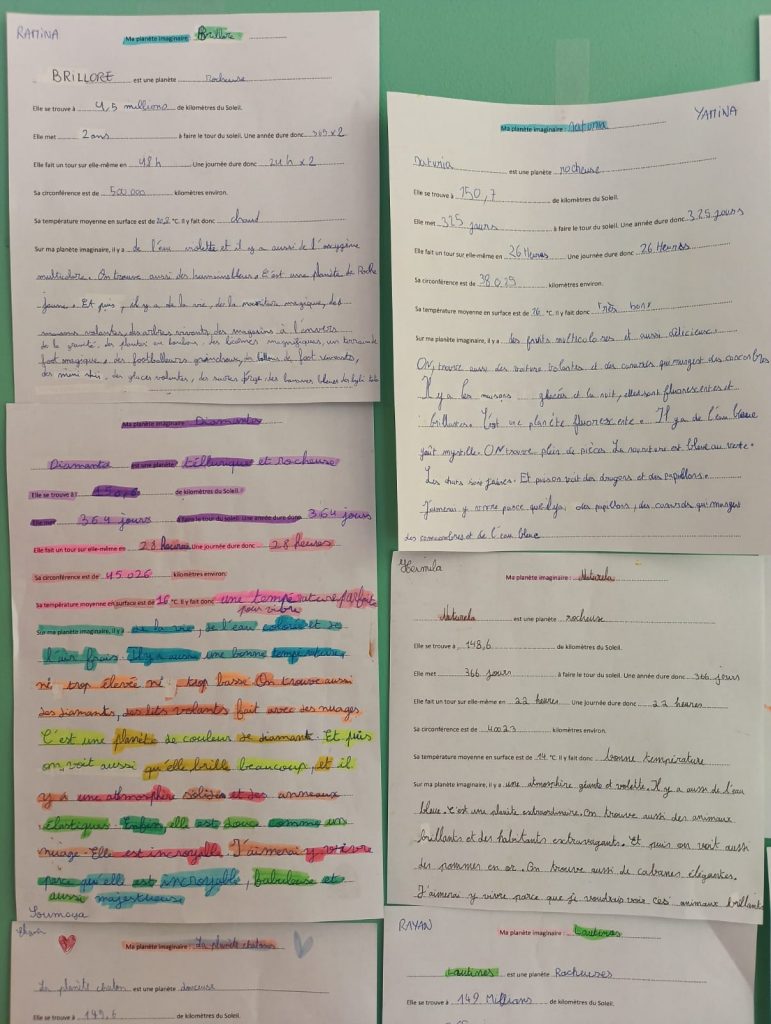 RAMINA
Ma planète imaginaire : Brillore
BRILLORE est une planète rocheuse
Elle se trouve à 4,5 millions de kilomètres du Soleil.
Elle met 2 ans à faire le tour du soleil. Une année dure donc 365 x 2
Elle fait un tour sur elle-même en 48 h Une journée dure donc 24 h x 2
Sa circonférence est de 500 000 kilomètres environ.
Sa température moyenne en surface est de °C. Il y fait donc chaud
Sur ma planète imaginaire, il y a de l'eau violette et il y a aussi de l'oxygène
multicolore. On trouve aussi des . C'est une planète de Roche
jaune. Et puis, il y a de la vie, de la nourriture magique, des
maisons volantes, des arbres vivants, des magasins à l'envers
de la gravité, des plantes en bonbons, des licornes magnifiques, un terrain de
foot magique, des footballeurs grandeux, des ballons de foot vivants,
des mini , des glaces volantes, des
YAMINA
Ma planète imaginaire : Naturia
Naturia est une planète rocheuse
Elle se trouve à 150,7 de kilomètres du Soleil.
Elle met 325 jours à faire le tour du soleil. Une année dure donc 325 jours
Elle fait un tour sur elle-même en 26 Heures Une journée dure donc 26 Heures
Sa circonférence est de 38 025 kilomètres environ.
Sa température moyenne en surface est de 26 °C. Il y fait donc Très bon
Sur ma planète imaginaire, il y a des fruits multicolores et aussi délicieux.
ON trouve aussi des voiture volantes et des canards qui mangent des concombres
Il y a les maisons glacées et la nuit, elles sont fluorescentes et
brillantes. C'est une planète fluorescente. Il y a de l'eau bleue
goût myrtille. ON trouve plein de pièces La nature est bleue au verte.
Les chats sont jaunes. Et puis on voit des dragons et des papillons.
J'aimerai y vivre parce qu'il y a des papillons, des canards qui mangent
des concombres et de l'eau bleue
Ma planète imaginaire : Diamanta
Diamanta est une planète tellurique et rocheuse
Elle se trouve à 150,6 de kilomètres du Soleil.
Elle met 364 jours à faire le tour du soleil. Une année dure donc 364 jours
Elle fait un tour sur elle-même en 28 heures Une journée dure donc 28 heures
Sa circonférence est de 45 026 kilomètres environ.
Sa température moyenne en surface est de 16 °C. Il y fait donc une température parfaite
pour vivre
Sur ma planète imaginaire, il y a de la vie, de l'eau colorée et de
l'air frais. Il y a aussi une bonne température,
ni trop élevée ni trop basse On trouve aussi
des diamants, des lits volants fait avec des nuages
C'est une planète de couleur de diamant. Et puis
on voit aussi qu'elle brille beaucoup, et il
y a une atmosphère solides et des anneaux
élastiques. Enfin, elle est douce comme un
nuage. Elle est incroyable. J'aimerai y vivre
parce qu'elle est incroyable, fabuleuse et
aussi majestueuse
Soumaya
Hermila
Ma planète imaginaire : Naturela
Naturela est une planète rocheuse
Elle se trouve à 148,6 de kilomètres du Soleil.
Elle met 366 jours à faire le tour du soleil. Une année dure donc 366 jours
Elle fait un tour sur elle-même en 22 heures Une journée dure donc 22 heures
Sa circonférence est de 40023 kilomètres environ.
Sa température moyenne en surface est de 14 °C. Il y fait donc bonne température
Sur ma planète imaginaire, il y a une atmosphère géante et violette. Il y a aussi de l'eau
bleue. C'est une planète extraordinaire. On trouve aussi des animaux
brillants et des habitants extravagants. Et puis on voit aussi
des pommes en or. On trouve aussi de cabanes élégantes.
J'aimerai y vivre parce que je voudrais voir ces animaux brillants
Ma planète imaginaire : La planète chaton
La planète chaton est une planète douceuse
Elle se trouve à 149,6 de kilomètres du Soleil.
RAYAN
Ma planète imaginaire : Lautines
Lautines est une planète Rocheuses
Elle se trouve à 149 Millions de kilomètres du Soleil.